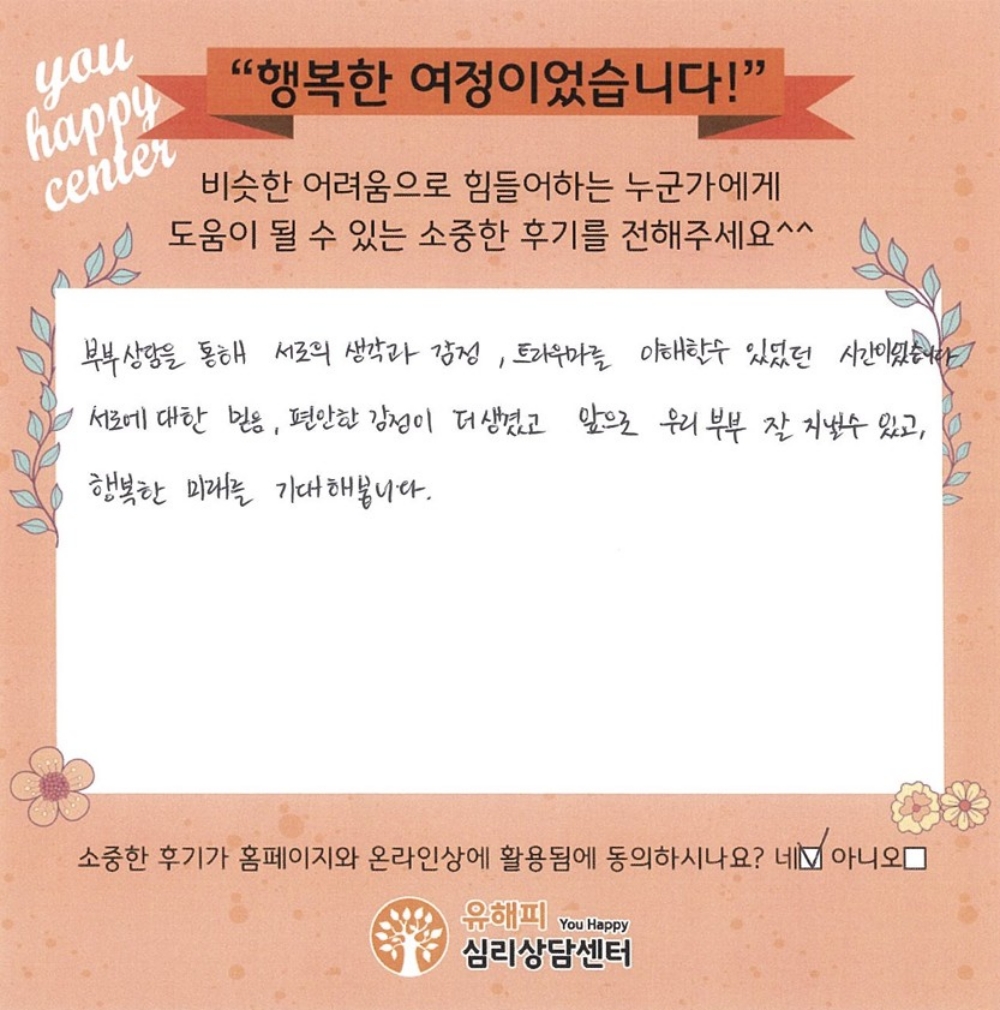 you
happy
center
“행복한 여정이었습니다!”
비슷한 어려움으로 힘들어하는 누군가에게
도움이 될 수 있는 소중한 후기를 전해주세요^^
부부상담을 통해 서로의 생각과 감정, 트라우마를 이해할수 있었던 시간이었습니다
서로에 대한 믿음, 편안한 감정이 더 생겼고 앞으로 우리 부부 잘 지낼수 있고,
행복한 미래를 기대해봅니다.
소중한 후기가 홈페이지와 온라인상에 활용됨에 동의하시나요? 네 아니오
유해피 You Happy
심리상담센터